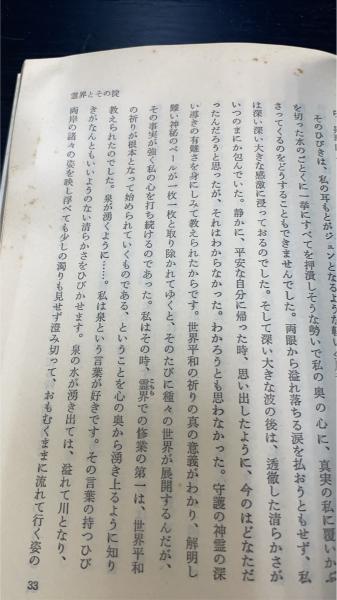 そのひびきは、私の耳もとがジュンとなるような
を切った水のごとくに一挙にすべてを押潰しそうな勢いで私の奥の心に、真実の私に覆いか
さってくるのをどうすることもできませんでした。両眼から溢れ落ちる涙を払おうともせず、私
は深い深い大きな感激に浸っておるのでした。そして深い大きな波の後は、透徹した清らかさが
いつのまにか包んでいた。静かに、平安な自分に帰った時、思い出したように、今のはどなただ
ったんだろうと思ったが、それはわからなかった。わかろうとも思わなかった。守護の神霊の深
い導きの有難さを身にしみて教えられたからです。世界平和の祈りの真の意義がわかり、解明し
難い神秘のベールが一枚一枚と取り除かれてゆくと、そのたびに種々の世界が展開するんだが、
その事実が強く私の心を打ち続けるのであった。私はその時、霊界での修業の第一は、世界平和
の祈りが根本となって始められていくものである、ということを心の奥から湧き上るように知り
教えられたのでした。泉が湧くように……。私は泉という言葉が好きです。その言葉の持つひび
きがなんともいいようのない清らかさをひびかせます。泉の水が湧き出ては、溢れて川となり、
両岸の諸々の姿を映し浮べても少しの濁りも見せず澄み切って、おもむくままに流れて行く姿の
霊界とその掟
33